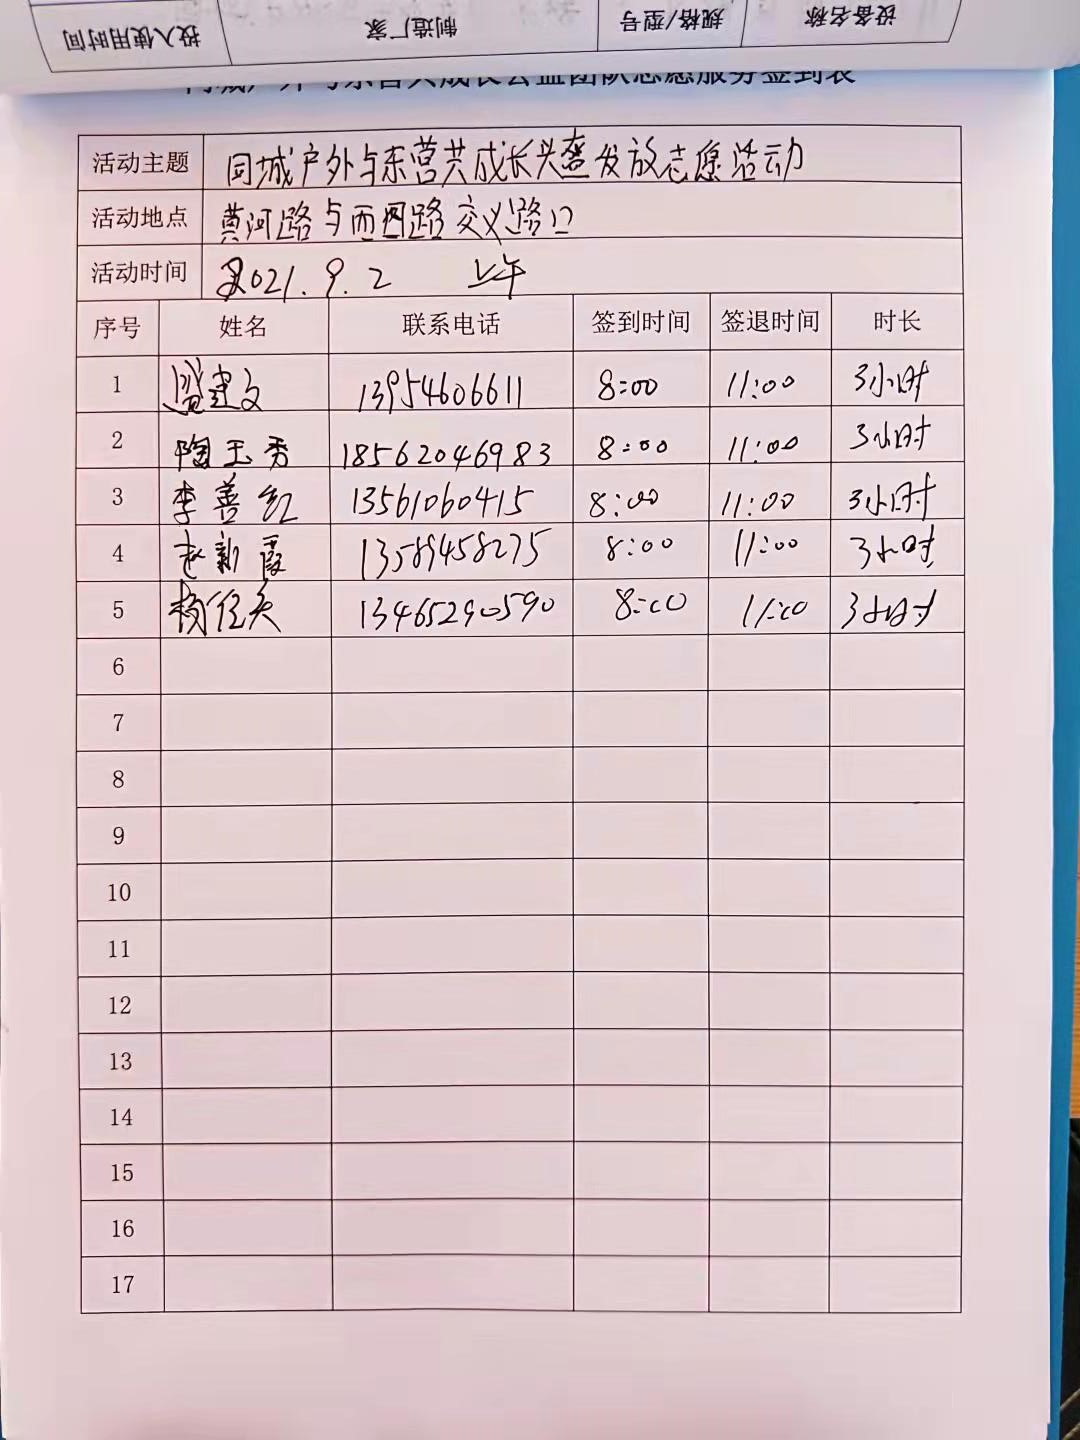 设备名称 规格/型号 制造厂家 投入使用时间
同城户外与东营共成长公益团队志愿服务签到表
活动主题 同城户外与东营共成长头盔发放志愿活动
活动地点 黄河路与西四路交义路口
活动时间 2021.9.2 上午
序号 姓名 联系电话 签到时间 签退时间 时长
1 盛建文 13954606611 8:00 11:00 3小时
2 陶玉秀 18562046983 8:00 11:00 3小时
3 李善红 13561060415 8:00 11:00 3小时
4 赵新霞 13589458275 8:00 11:00 3小时
5 13465290590 8:00 11:00 3小时
6
7
8
9
10
11
12
13
14
15
16
17